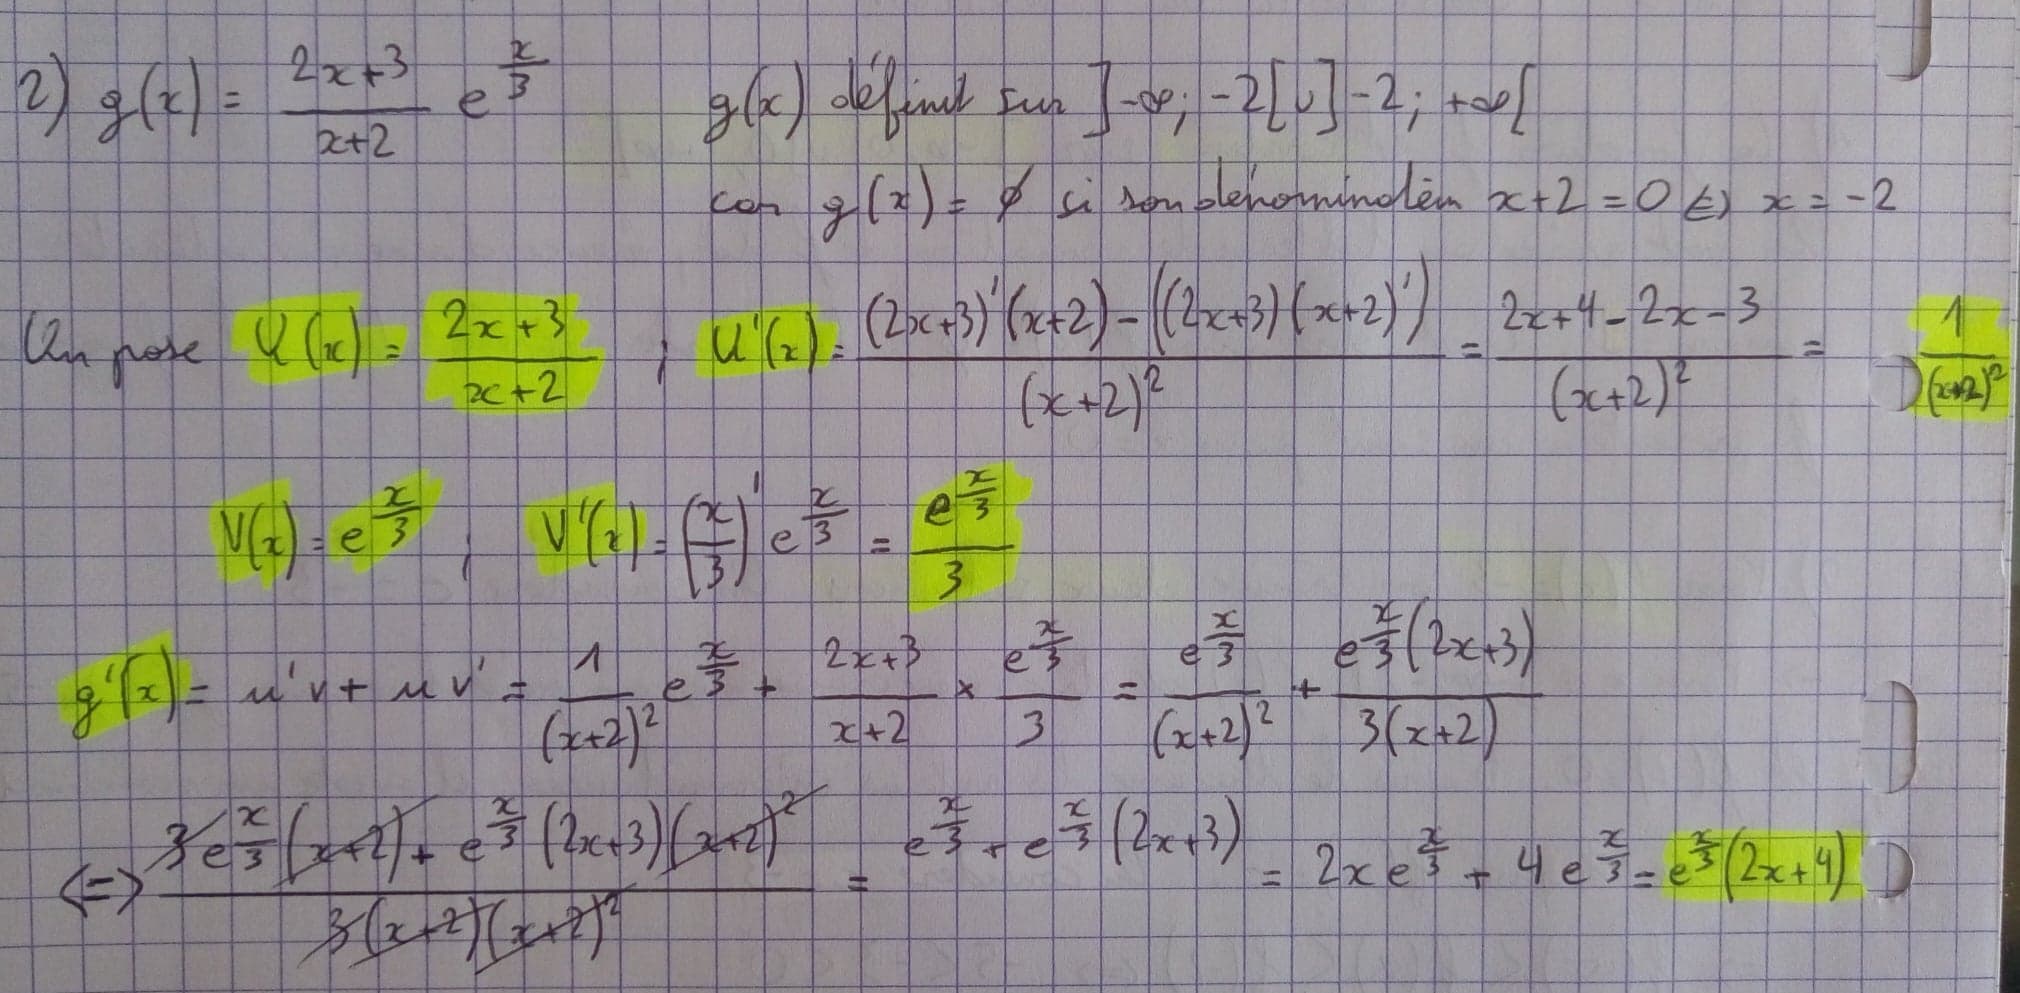 2) g(x) = (2x+3)/(x+2) e^(x/3) g(x) définit sur ]-∞; -2[∪]-2; +∞[
car g(x) = ∅ si son dénominateur x+2 = 0 <=> x = -2
On pose U(x) = (2x+3)/(x+2) ; U'(x) = ((2x+3)'(x+2) - ((2x+3)(x+2)'))/(x+2)² = (2x+4-2x-3)/(x+2)² = 1/(x+2)²
V(x) = e^(x/3) ; V'(x) = (x/3)' e^(x/3) = e^(x/3)/3
g'(x) = u'v + uv' = 1/(x+2)² e^(x/3) + (2x+3)/(x+2) × e^(x/3)/3 = e^(x/3)/(x+2)² + e^(x/3)(2x+3)/(3(x+2))
<=> (3e^(x/3)(x+2) + e^(x/3)(2x+3)(x+2)²)/(3(x+2)(x+2)²) = e^(x/3) + e^(x/3)(2x+3) = 2xe^(x/3) + 4e^(x/3) = e^(x/3)(2x+4)